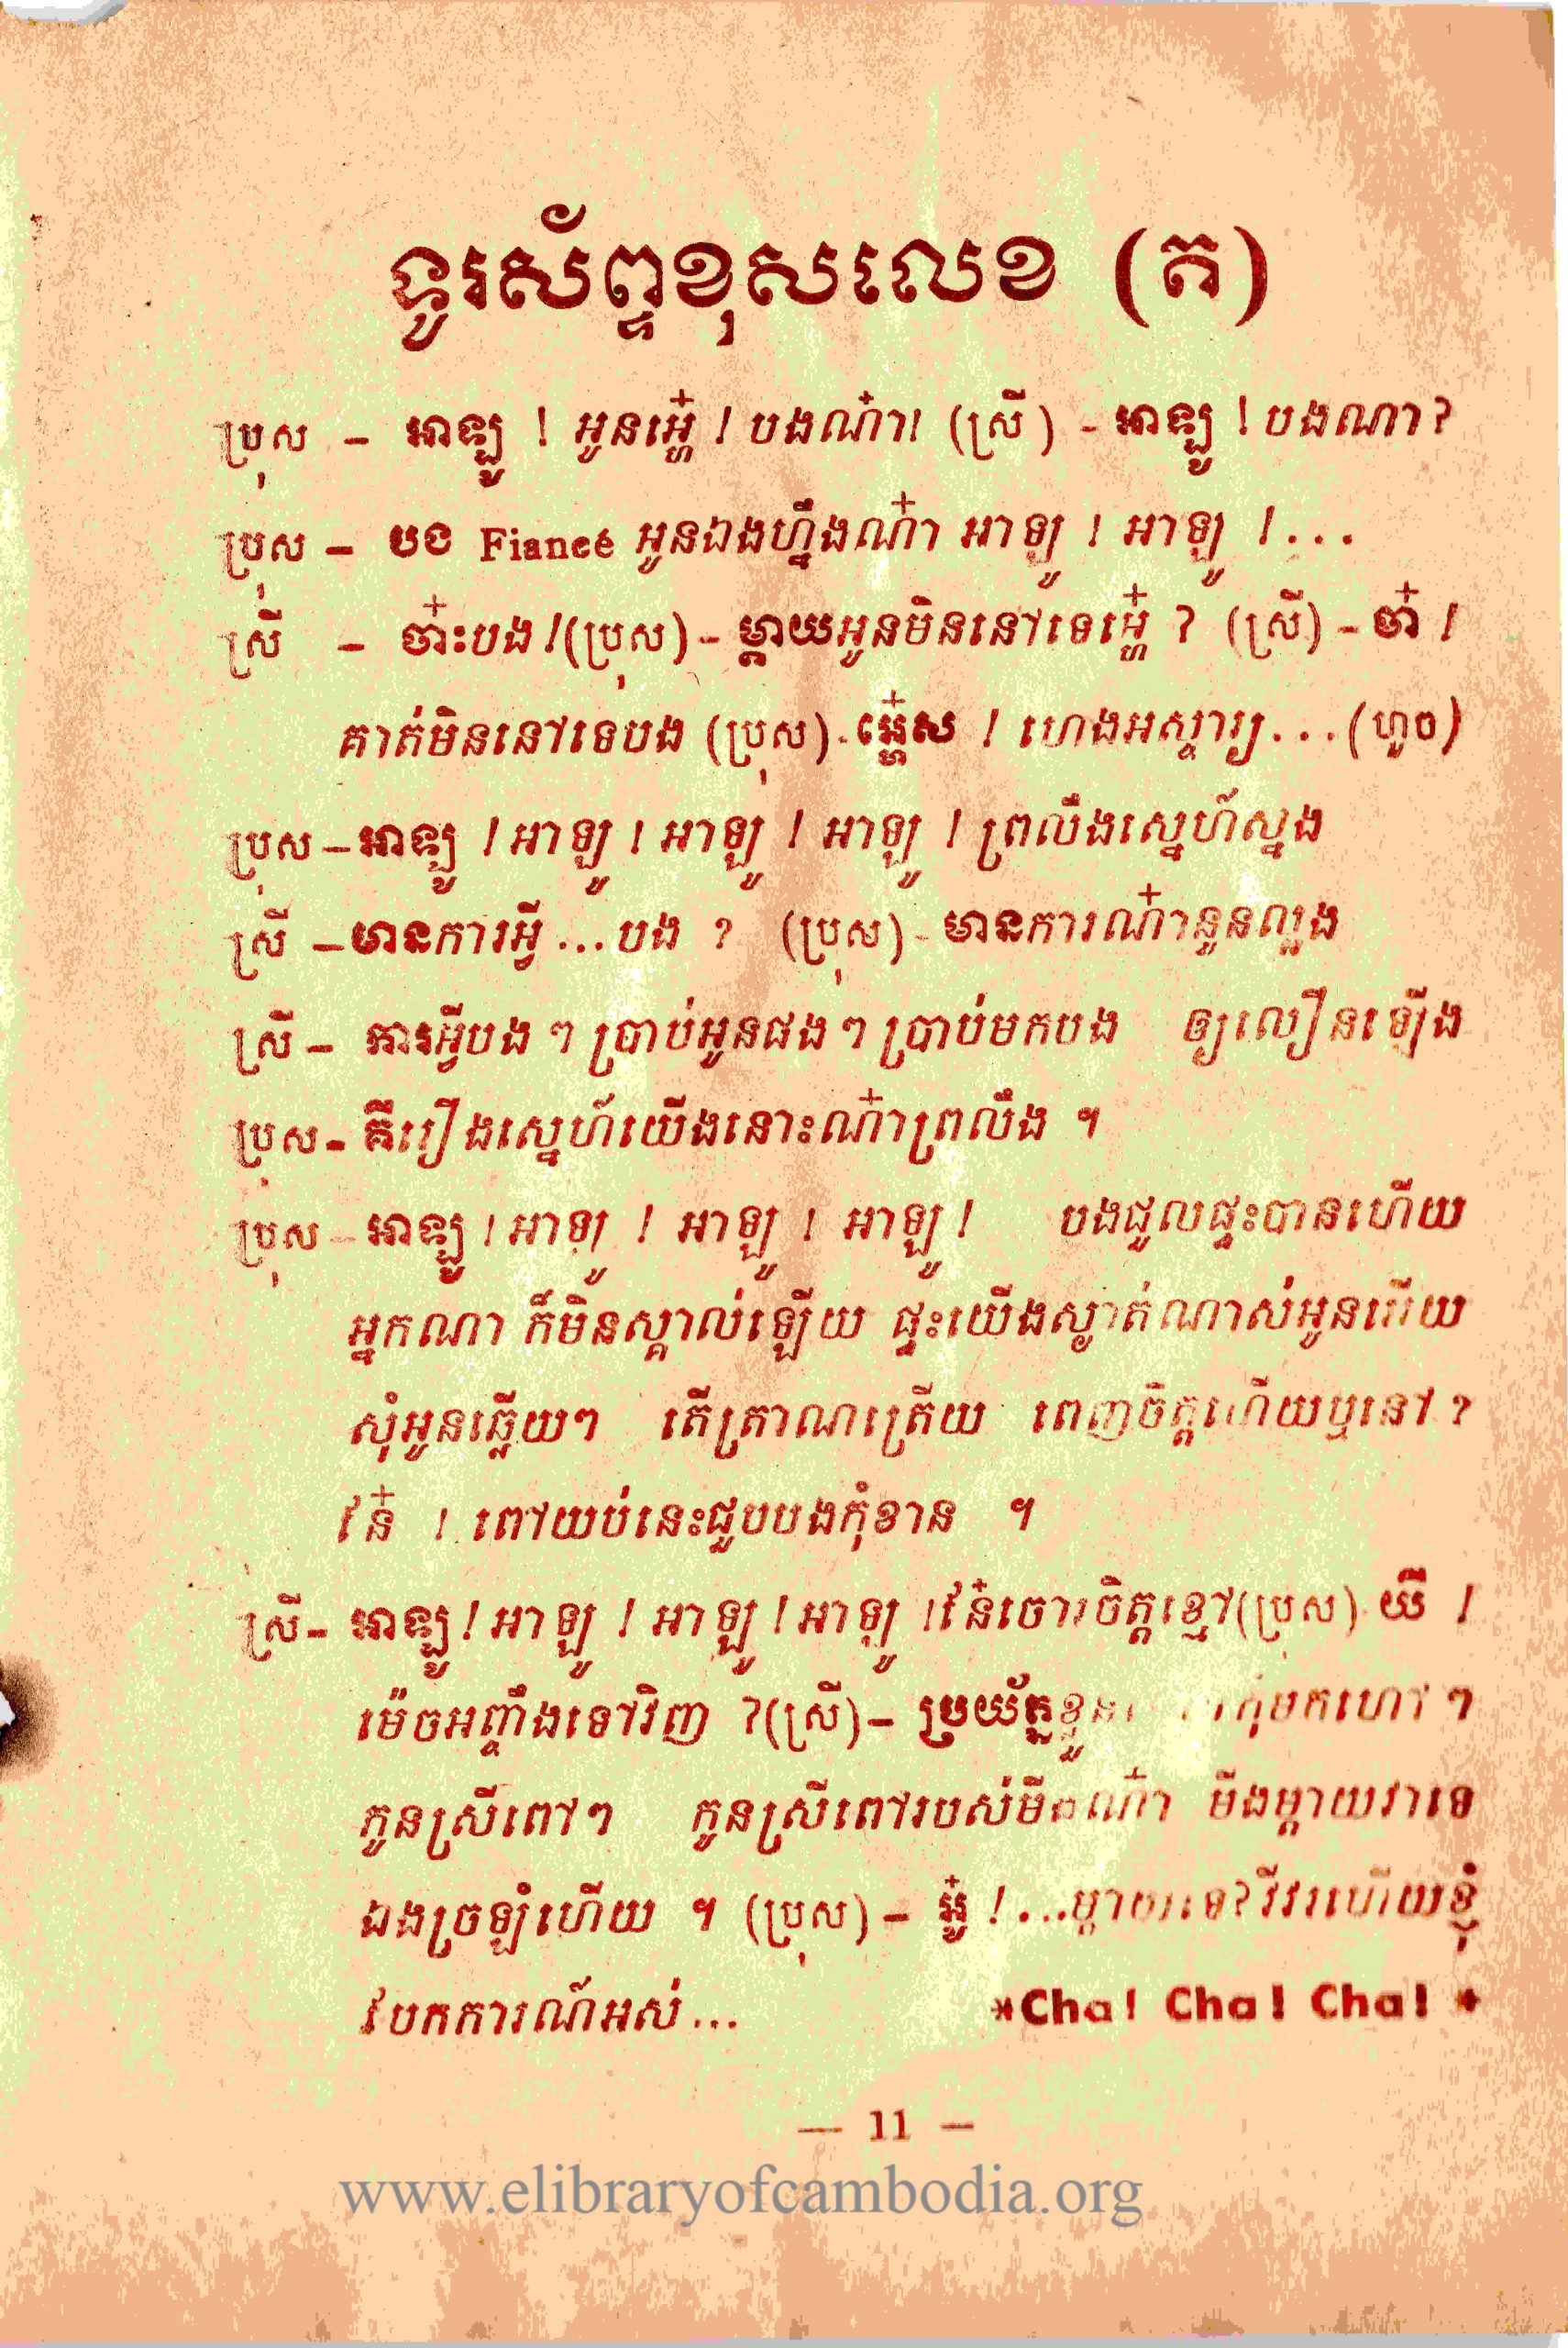 ទូរស័ព្ទខុសលេខ (ត)
ប្រុស – អាឡូ ! អូនអ្ហេ៎ ! បងណ៎ា! (ស្រី) - អាឡូ ! បងណា ?
ប្រុស – បង Fiancé អូនឯងហ្នឹងណ៎ា អាឡូ ! អាឡូ !...
ស្រី – ច៎ាះបង !(ប្រុស) - ម្ដាយអូនមិននៅទេអ្ហេ៎ ? (ស្រី) - ច៎ា !
គាត់មិននៅទេបង (ប្រុស) - អ្ហេ៎ស ! ហេងអស្ចារ្យ...(ហួច)
ប្រុស – អាឡូ ! អាឡូ ! អាឡូ ! អាឡូ ! ព្រលឹងស្នេហ៍ស្នង
ស្រី – មានការអ្វី ... បង ? (ប្រុស) - មានការណ៎ានួនល្អង
ស្រី – ការអ្វីបង ៗ ប្រាប់អូនផង ៗ ប្រាប់មកបង ឲ្យលឿនឡើង
ប្រុស - គឺរឿងស្នេហ៍យើងនោះណ៎ាព្រលឹង ។
ប្រុស – អាឡូ ! អាឡូ ! អាឡូ ! អាឡូ ! បងជួលផ្ទះបានហើយ
អ្នកណា ក៏មិនស្គាល់ឡើយ ផ្ទះយើងស្ងាត់ណាស់អូនអើយ
សុំអូនឆ្លើយៗ តើត្រាណត្រើយ ពេញចិត្តហើយឬនៅ ?
នែ៎ ! ពៅយប់នេះជួបបងកុំខាន ។
ស្រី – អាឡូ ! អាឡូ ! អាឡូ ! អាឡូ ! នែ៎ចោរចិត្តខ្មៅ (ប្រុស) - យី !
ម៉េចអញ្ចឹងទៅវិញ ? (ស្រី) – ប្រយ័ត្នខ្លួន កុំមកហៅ ៗ
កូនស្រីពៅៗ កូនស្រីពៅរបស់មីងណ៎ា មីងម្ដាយវាទេ
ឯងច្រឡំហើយ ។ (ប្រុស) – អ្ហូ៎ !...ម្ដាយទេ? វីវរហើយខ្ញុំ
បែកការណ៍អស់...
*Cha! Cha! Cha! *
— 11 —
www.elibraryofcambodia.org